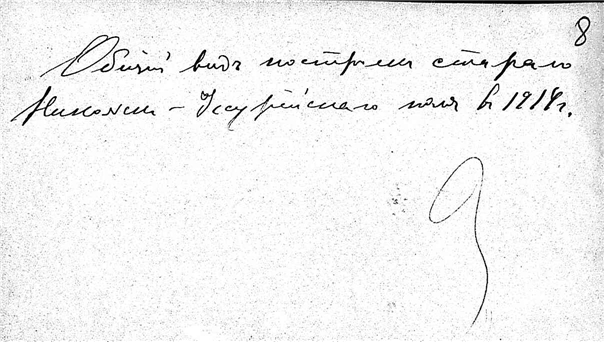 8
Общій видъ построек стараго
Никольск-Уссурійскаго поля в 1914г.